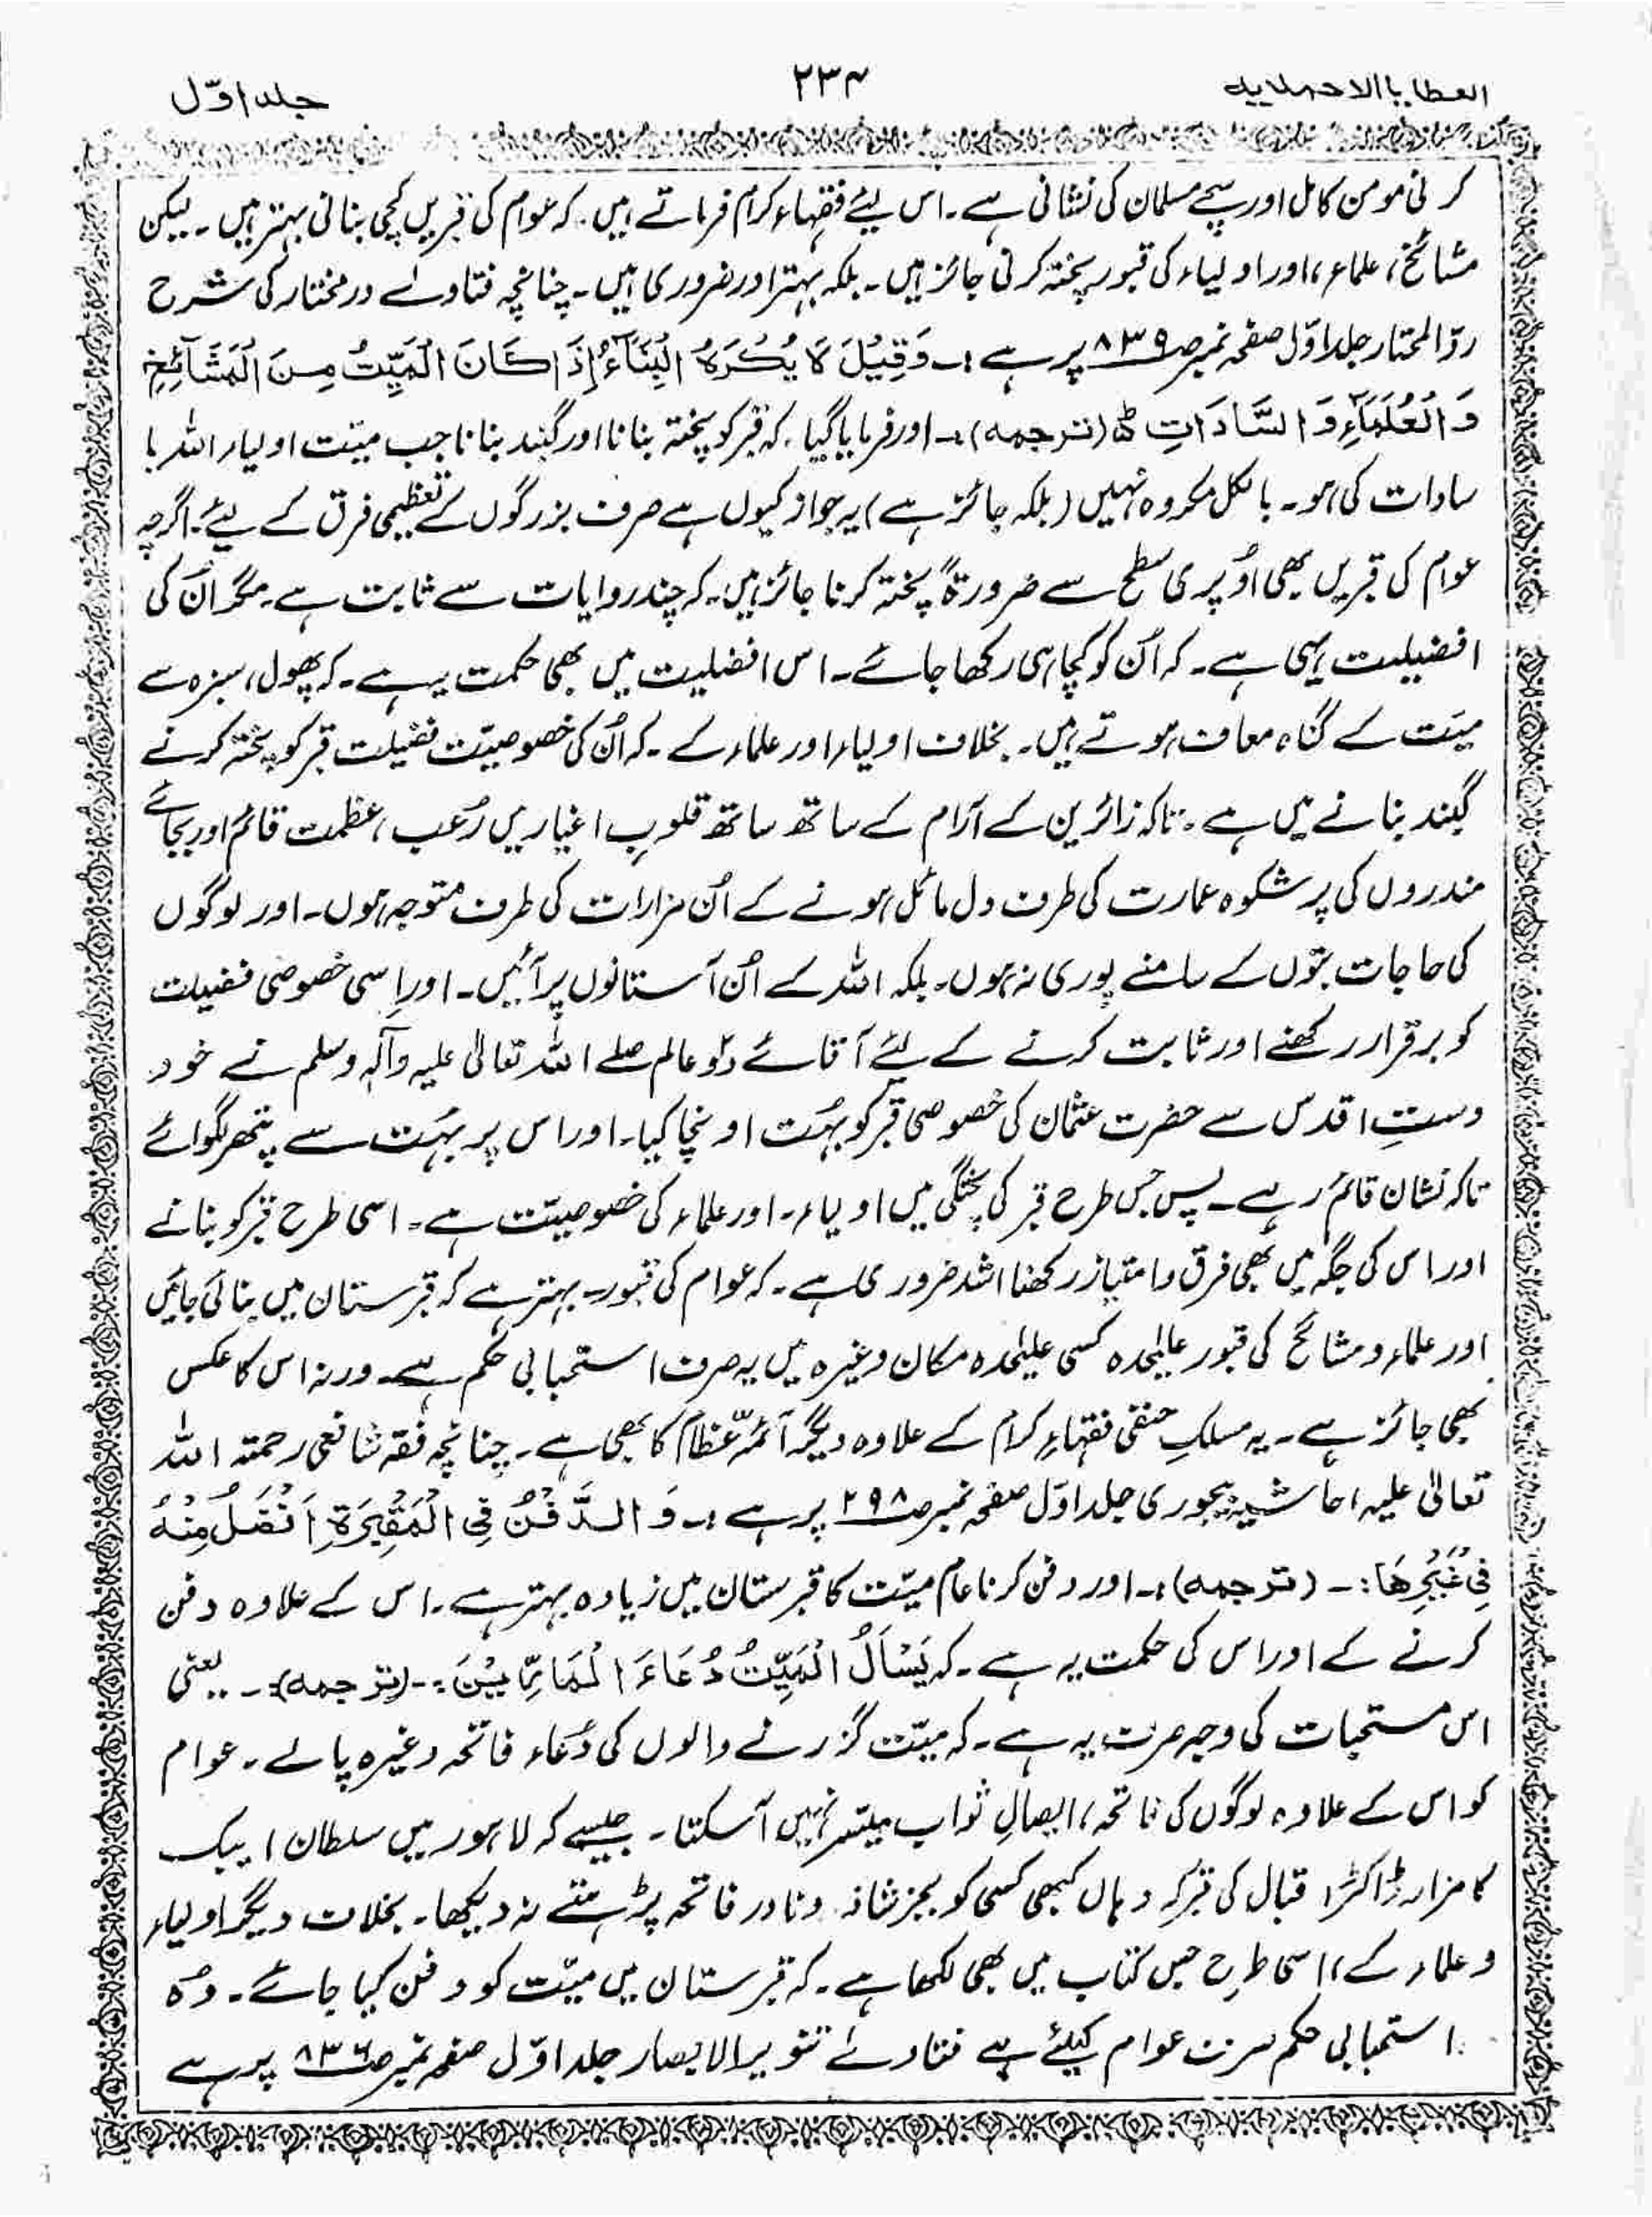 العطایا الاحمدیہ
۲۳۴
جلد اوّل
کرنی مومن کامل اور سچے مسلمان کی نشانی ہے۔ اس لیئے فقہاء کرام فرماتے ہیں۔ کہ عوام کی قبریں کچی بنانی بہتر ہیں۔ لیکن
مشائخ، علماء، اور اولیاء کی قبور پختہ کرنی جائز ہیں۔ بلکہ بہتر اور ضروری ہیں۔ چنانچہ فتاوےٰ درمختار کی شرح
ردّ المحتار جلد اوّل صفحہ نمبر صـ۸۳۹ پر ہے :۔ وَقِیْلَ لَا یُکْرَہُ الْبِنَآءُ اِذَا کَانَ الْمَیِّتُ مِنَ الْمَشَآئِخِ
وَالْعُلَمَآءِ وَالسَّادَاتِ ط (ترجمہ)۔ اور فرمایا گیا۔ کہ قبر کو پختہ بنانا اور گنبد بنانا جب میّت اولیاء اللہ یا
سادات کی ہو۔ بالکل مکروہ نہیں (بلکہ جائز ہے) یہ جواز کیوں ہے صرف بزرگوں کے تعظیمی فرق کے لیئے۔ اگرچہ
عوام کی قبریں بھی اُوپری سطح سے ضرورۃً پختہ کرنا جائز ہیں۔ کہ چند روایات سے ثابت ہے۔ مگر اُن کی
افضیلیت یہی ہے۔ کہ اُن کو کچا ہی رکھا جائے۔ اس افضلیت میں بھی حکمت یہ ہے۔ کہ پھول، سبزہ سے
میّت کے گناہ معاف ہوتے ہیں۔ بخلاف اولیاء اور علماء کے۔ کہ اُن کی خصوصیّت فضیلت قبر کو پختہ کرنے
گنبد بنانے میں ہے۔ تاکہ زائرین کے آرام کے ساتھ ساتھ قلوبِ اغیار میں رُعب، عظمت قائم اور بجائے
مندروں کی پر شکوہ عمارت کی طرف دل مائل ہونے کے اُن مزارات کی طرف متوجہ ہوں۔ اور لوگوں
کی حاجات بتوں کے سامنے پوری نہ ہوں۔ بلکہ اللہ کے اُن آستانوں پر آئیں۔ اور اِسی خصوصی فضیلت
کو برقرار رکھنے اور ثابت کرنے کے لیئے آقائے دلوعالم صلے اللہ تعالیٰ علیہ وآلہٖ وسلم نے خود
دستِ اقدس سے حضرت عثمان کی خصوصی قبر کو بہُت اونچا کیا۔ اور اس پر بہُت سے پتھر لگوائے
تاکہ نشان قائم رہے۔ پس جس طرح قبر کی پختگی میں اولیاء۔ اور علماء کی خصوصیّت ہے۔ اسی طرح قبر کو بنانے
اور اس کی جگہ میں بھی فرق و امتیاز رکھنا اشد ضروری ہے۔ کہ عوام کی قبور۔ بہتر ہے کہ قبرستان میں بنائی جائیں
اور علماء و مشائخ کی قبور عالیٰحدہ کسی علیٰحدہ مکان وغیرہ میں یہ صرف استحبابی حکم ہے۔ ورنہ اس کا عکس
بھی جائز ہے۔ یہ مسلکِ حنفی فقہاءِ کرام کے علاوہ دیگر آئمہّ عظام کا بھی ہے۔ چنانچہ فقہ شافعی رحمتہ اللہ
تعالیٰ علیہ، حاشیہ بیجوری جلد اوّل صفحہ نمبر صـ۲۹۸ پر ہے :۔ وَالدَّفْنُ فِی الْمَقْبَرَۃِ اَفْضَلُ مِنْہُ
فِیْ غَیْرِھَا :۔ (ترجمہ) :۔ اور دفن کرنا عام میّت کا قبرستان میں زیادہ بہتر ہے۔ اس کے علاوہ دفن
کرنے کے اور اس کی حکمت یہ ہے۔ کہ یَسْاَلُ الْمَیِّتُ دُعَاءَ الْمَارِّیْنَ :۔ (ترجمہ) :۔ یعنی
اس مستحبات کی وجہ صرف یہ ہے۔ کہ میّت گزرنے والوں کی دُعاء فاتحہ وغیرہ پالے۔ عوام
کو اس کے علاوہ لوگوں کی فاتحہ، ایصالِ ثواب میسّر نہیں آسکتا۔ جیسے کہ لاہور میں سلطان ایبک
کا مزار ڈاکٹر اقبال کی قبر کہ وہاں کبھی کسی کو بجز شاذ و نادر فاتحہ پڑہتے نہ دیکھا۔ بخلاف دیگر اولیاء
و علماء کے، اسی طرح جس کتاب میں بھی لکھا ہے۔ کہ قبرستان میں میّت کو دفن کیا جائے۔ وُہ
استحبابی حکم صرف عوام کیلئے ہے فتاوےٰ تنویر الابصار جلد اوّل صفحہ نمبر صـ۸۳۶ پر ہے